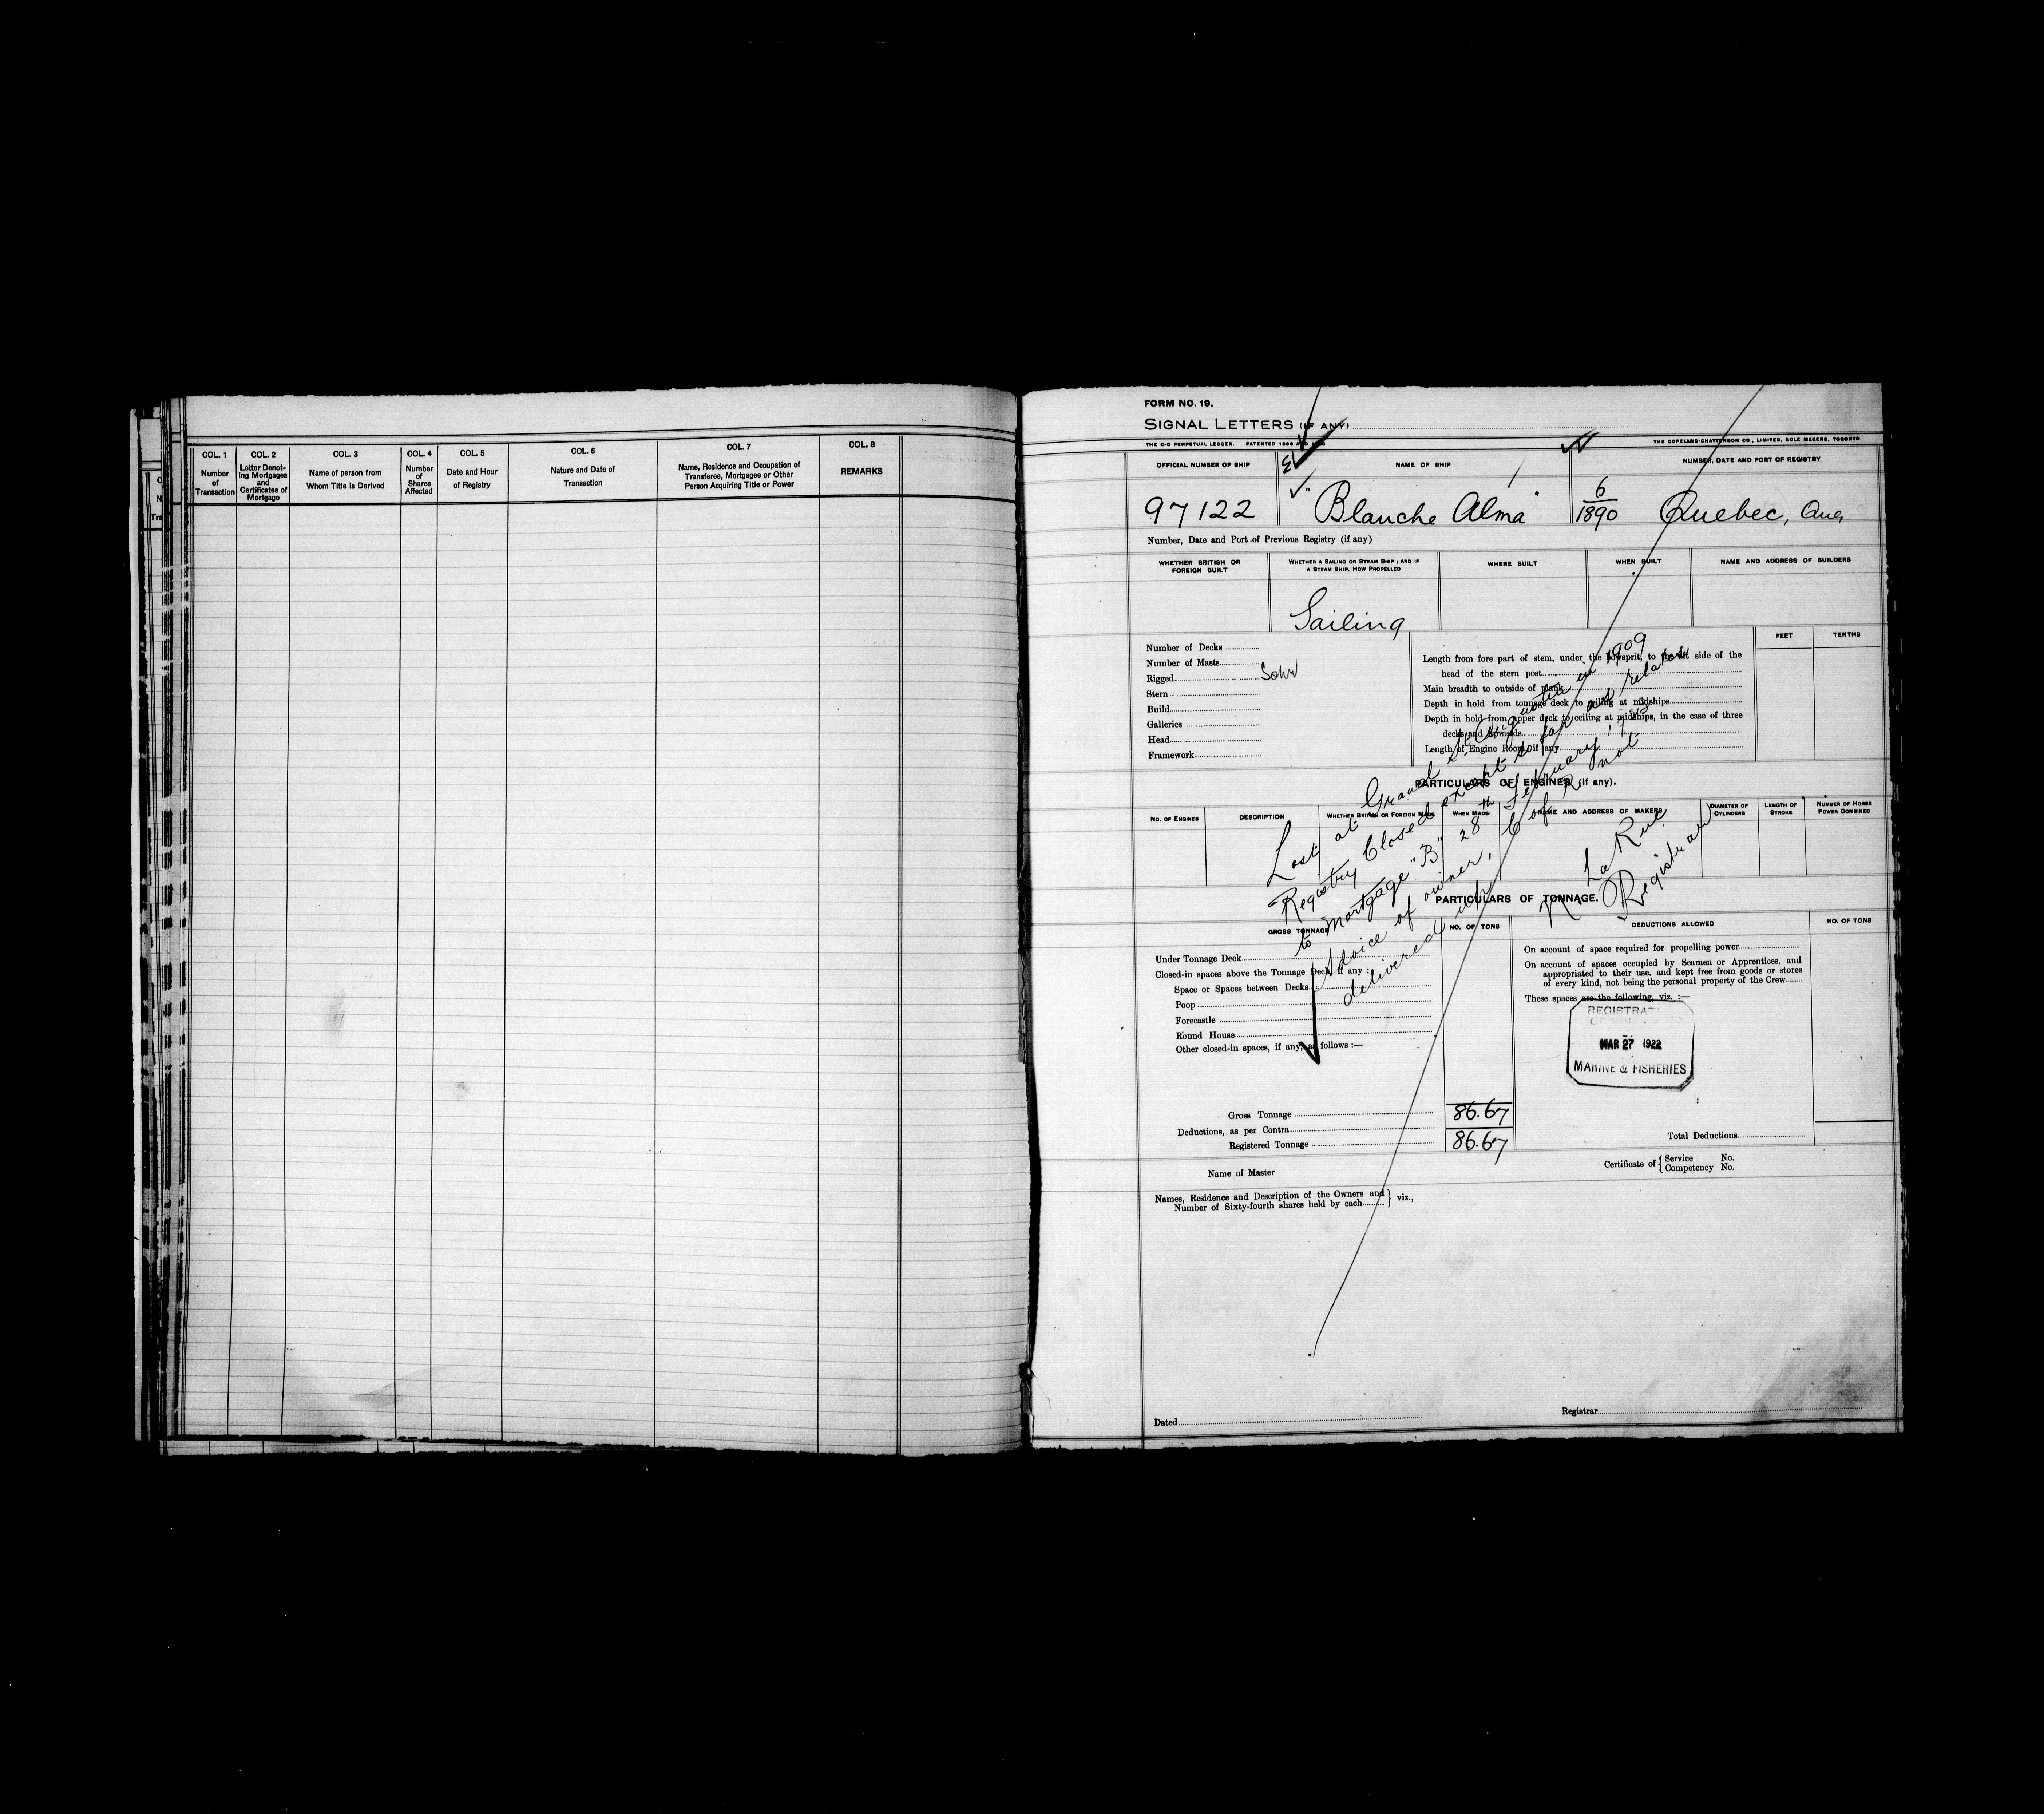 COL. 1
Number
of
Transaction
COL. 2
Letter Denot-
ing Mortgages
and
Certificates of
Mortgage
COL. 3
Name of person from
Whom Title is Derived
COL. 4
Number
of
Shares
Affected
COL. 5
Date and Hour
of Registry
COL. 6
Nature and Date of
Transaction
COL. 7
Name, Residence and Occupation of
Transferee, Mortgagee or Other
Person Acquiring Title or Power
COL. 8
REMARKS
FORM NO. 19.
SIGNAL LETTERS (IF ANY)
THE C-C PERPETUAL LEDGER. PATENTED
THE COPELAND-CHATTERSON CO., LIMITED, SOLE MAKERS, TORONTO
OFFICIAL NUMBER OF SHIP
NAME OF SHIP
NUMBER, DATE AND PORT OF REGISTRY
97122
"Blanche Alma"
6
1890
Quebec, Que
Number, Date and Port of Previous Registry (if any)
WHETHER BRITISH OR
FOREIGN BUILT
WHETHER A SAILING OR STEAM SHIP; AND IF
A STEAM SHIP, HOW PROPELLED
WHERE BUILT
WHEN BUILT
NAME AND ADDRESS OF BUILDERS
Sailing
Number of Decks
Number of Masts
Rigged Schr
Stern
Build
Galleries
Head
Framework
FEET
TENTHS
Length from fore part of stem, under the bowsprit, to the aft side of the
head of the stern post
Main breadth to outside of plank
Depth in hold from tonnage deck to ceiling at midships
Depth in hold from upper deck to ceiling at midships, in the case of three
decks and upwards
Length of Engine Room, if any
PARTICULARS OF ENGINES (if any).
NO. OF ENGINES
DESCRIPTION
WHETHER BRITISH OR FOREIGN MADE
WHEN MADE
NAME AND ADDRESS OF MAKERS
DIAMETER OF
CYLINDERS
LENGTH OF
STROKE
NUMBER OF HORSE
POWER COMBINED
Lost at Grand in 1909
Registry Closed except so far as relates
to Mortgage "B" 28th February,
Advice of owner, C of R not
delivered up
La Rue
Registrar
PARTICULARS OF TONNAGE.
GROSS TONNAGE
NO. OF TONS
DEDUCTIONS ALLOWED
NO. OF TONS
Under Tonnage Deck
Closed-in spaces above the Tonnage Deck, if any:
Space or Spaces between Decks
Poop
Forecastle
Round House
Other closed-in spaces, if any, as follows:—
On account of space required for propelling power
On account of spaces occupied by Seamen or Apprentices, and
appropriated to their use, and kept free from goods or stores
of every kind, not being the personal property of the Crew
These spaces are the following, viz.:—
MAR 27 1922
MARINE & FISHERIES
Gross Tonnage 86.67
Deductions, as per Contra
Registered Tonnage 86.67
Total Deductions
Name of Master
Certificate of { Service No.
Competency No.
Names, Residence and Description of the Owners and } viz.,
Number of Sixty-fourth shares held by each
Dated
Registrar